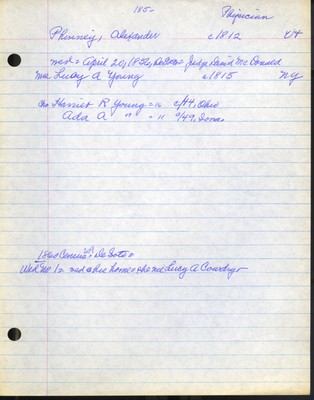 185-
Physician
Phinney, Alexander c1812 Vt
med = April 20, 1856, DeSoto = Judge David McDonald
Mrs Lucy A Young c1815 NY
ch Harriet R Young = 16 c/44, Ohio
Ada A " = 11 c/49, Iowa
1860 Census: DeSoto =
Wed in his home = she nee Lucy A